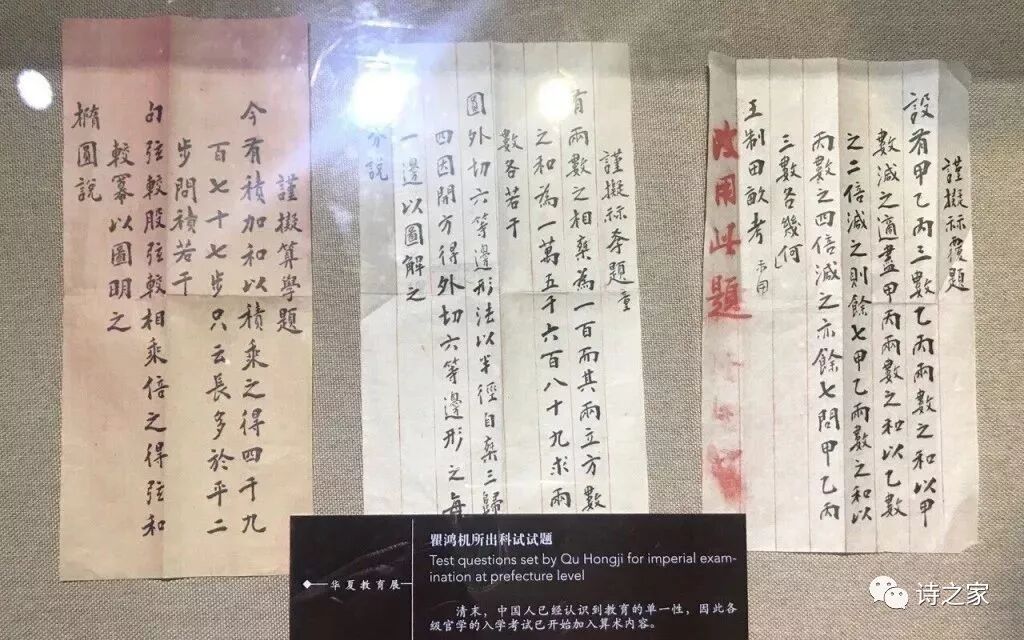 謹擬祘覆題
設有甲乙丙三數乙丙兩數之和以甲
數減之適盡甲丙兩數之和以乙數
之二倍減之則餘七甲乙兩數之和以
丙數之四倍減之亦餘七問甲乙丙
三數各幾何
王制田畝考
用此題
謹擬祘題
有兩數之相乘為一百而其兩立方數
之和為一萬五千六百八十九求兩
數各若干
圓外切六等邊形法以半徑自乘三歸
四因開方得外切六等邊形之每
一邊以圖解之
說
謹擬算學題
今有積加和以積乘之得四千九
百七十七步只云長多於平二
步問積若干
句弦較股弦較相乘倍之得弦和
較冪以圖明之
橢圓說
华夏教育展
瞿鸿机所出科试试题
Test questions set by Qu Hongji for imperial exam-
ination at prefecture level
清末，中国人已经认识到教育的单一性，因此各
级官学的入学考试已开始加入算术内容。
诗之家